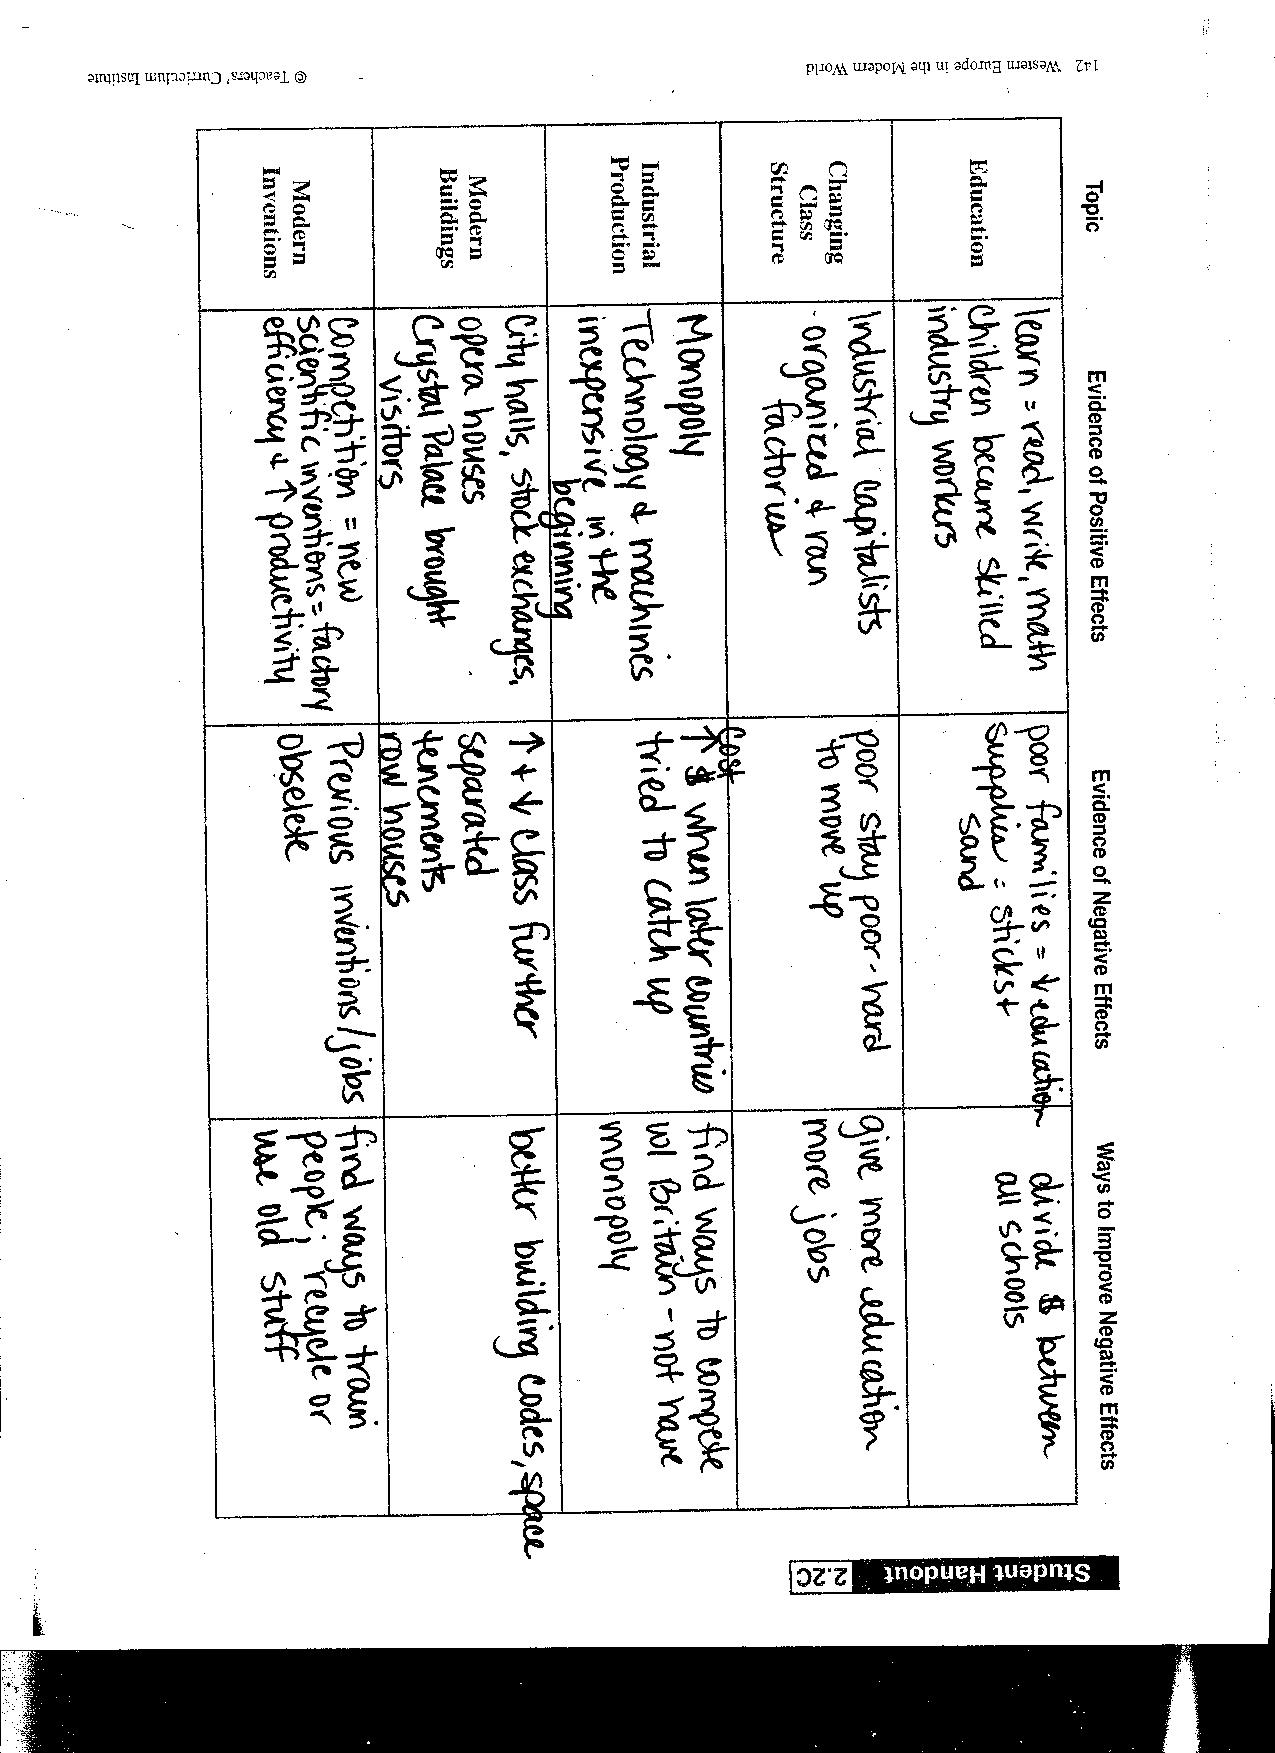 Student Handout 2.2C
Topic
Evidence of Positive Effects
Evidence of Negative Effects
Ways to Improve Negative Effects
Education
learn = read, write, math
children became skilled
industry workers
poor families = ↓ education
supplies = sticks +
sand
divide $ between
all schools
Changing
Class
Structure
Industrial capitalists
- organized & ran
factories
poor stay poor - hard
to move up
give more education
more jobs
Industrial
Production
Monopoly
Technology & machines
inexpensive in the
beginning
cost
↑ $ when later countries
tried to catch up
find ways to compete
w/ Britain - not have
monopoly
Modern
Buildings
City halls, stock exchanges,
opera houses
Crystal Palace brought
visitors
↑ + ↓ class further
separated
tenements
row houses
better building codes, space
Modern
Inventions
Competition = new
scientific inventions = factory
efficiency & ↑ productivity
Previous inventions/jobs
obselete
find ways to train
people; recycle or
use old stuff
142 Western Europe in the Modern World
© Teachers' Curriculum Institute